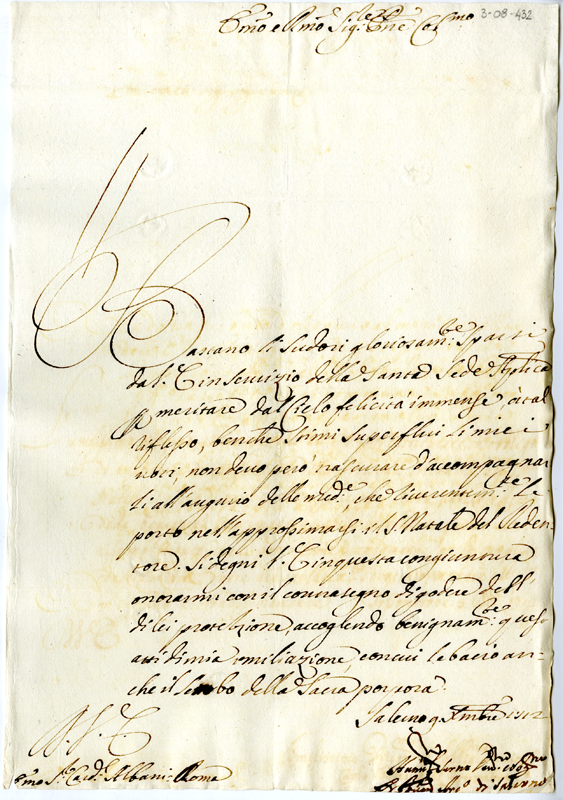 3-08-432
Em̃o e Rm̃o Sig.re Pne Col.mo
Bastano li sudori gloriosam.te sparsi
dal. E. in servizio della Santa Sede Aplica
p meritare dal Cielo felicità immense, à tal
riflesso, benche stimi superflui li miei
voti, non devo però trascurare d'accompagnar
li all'augurio delle med.e, che riverentem.te Le
porto nell'approssimarsi il S. Natale del Reden
tore. Si degni l'E. in questa congiuntura
onorarmi con il contrasegno di godere dell'
di lei protezzione, accogliendo benignam.te quest'
atto di mia umiliazione, con cui le bacio an
che il lembo della Sacra porpora.
Salerno 9 Xmbre 1712
Em̃o S.r Card. Albani Roma
di Salerno